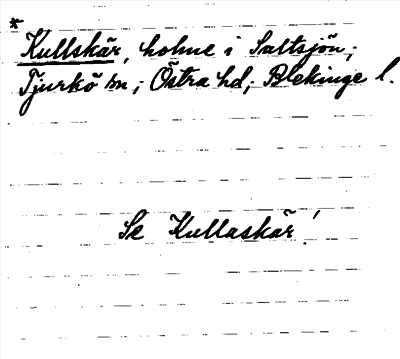 *
Kullskär, holme i Saltsjön;
Tjurkö sn; Östra hd; Blekinge l.
Se Kullaskär!